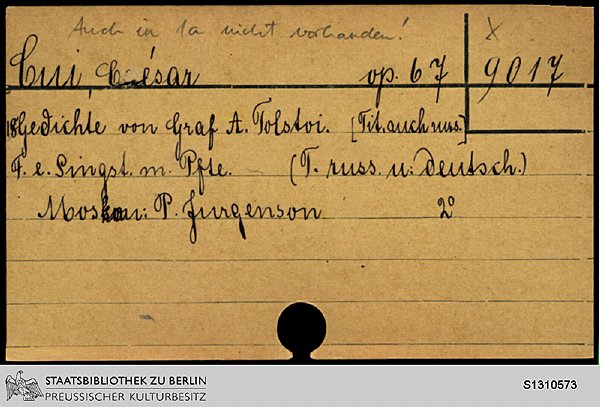 Auch in 1a nicht vorhanden!
X
Cui, César op. 67
9017
18 Gedichte von Graf A. Tolstoi. [Tit. auch russ.]
F. e. Singst. m. Pfte. (T. russ. u. deutsch.)
Moskau: P. Jurgenson 2°
STAATSBIBLIOTHEK ZU BERLIN
PREUSSISCHER KULTURBESITZ
S1310573